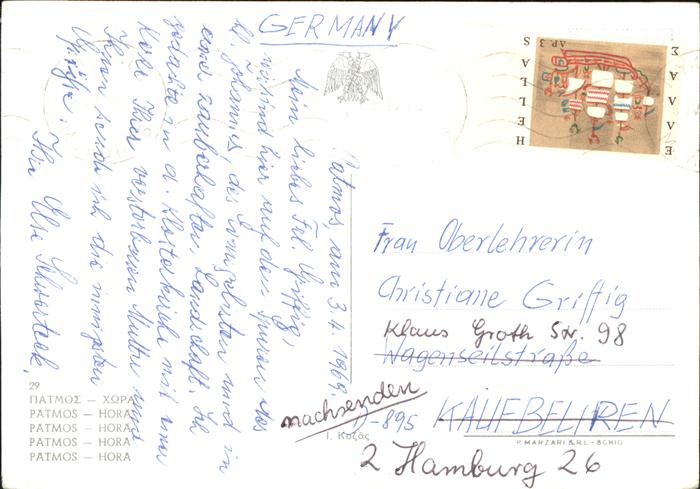 GERMANY
Patmos, am 3.4.1969
Mein liebes Frl. Griffig,
wir sind hier auf den Spuren des
hl. Johannes, des Evangelisten und in
einer zauberhaften Landschaft. Ich
gedachte in d. Klosterkirche mit einer
Kerze Ihrer verstorbenen Mutter und
Ihnen sende ich die innigsten
Grüße. Ihre Ilse
ΕΛΛΑΣ
HELLAS
ΔΡ. 3
Frau Oberlehrerin
Christiane Griffig
Klaus Groth Str. 98
Wagenseilstraße
nachsenden
D-895 KAUFBEUREN
2 Hamburg 26
29
ΠΑΤΜΟΣ — ΧΩΡΑ
PATMOS — HORA
PATMOS — HORA
PATMOS — HORA
PATMOS — HORA
Ι. Κοζάς
P. MARZARI S.R.L. - SCHIO